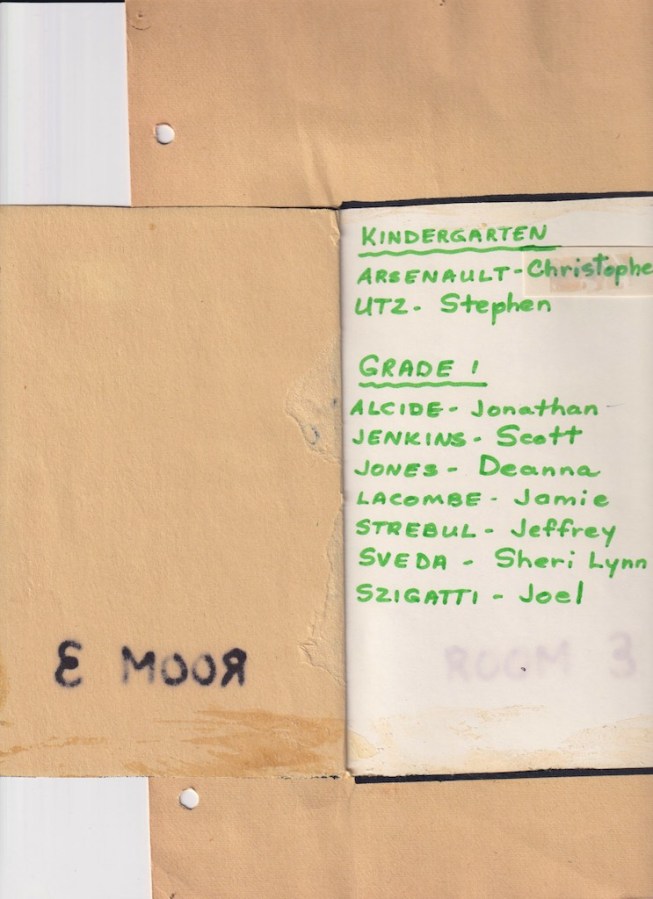 KINDERGARTEN
ARSENAULT - Christophe
UTZ - Stephen
GRADE 1
ALCIDE - Jonathan
JENKINS - Scott
JONES - Deanna
LACOMBE - Jamie
STREBUL - Jeffrey
SVEDA - Sheri Lynn
SZIGATTI - Joel
ROOM 3
ROOM 3